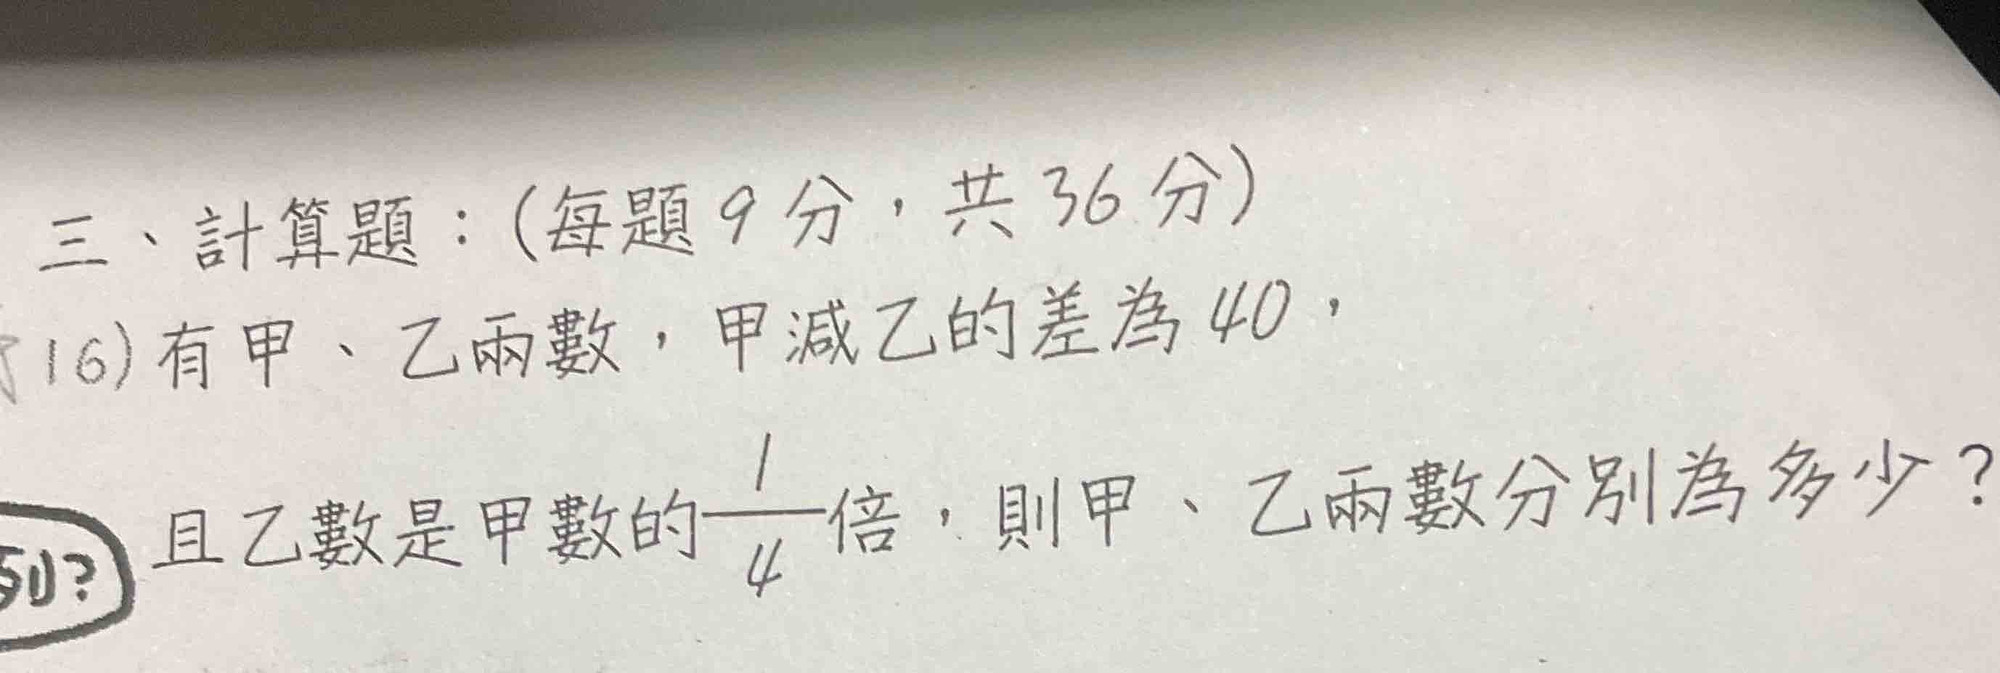 三、計算題：(每題9分，共36分)
16)有甲、乙兩數，甲減乙的差為40，
且乙數是甲數的1/4倍，則甲、乙兩數分別為多少？